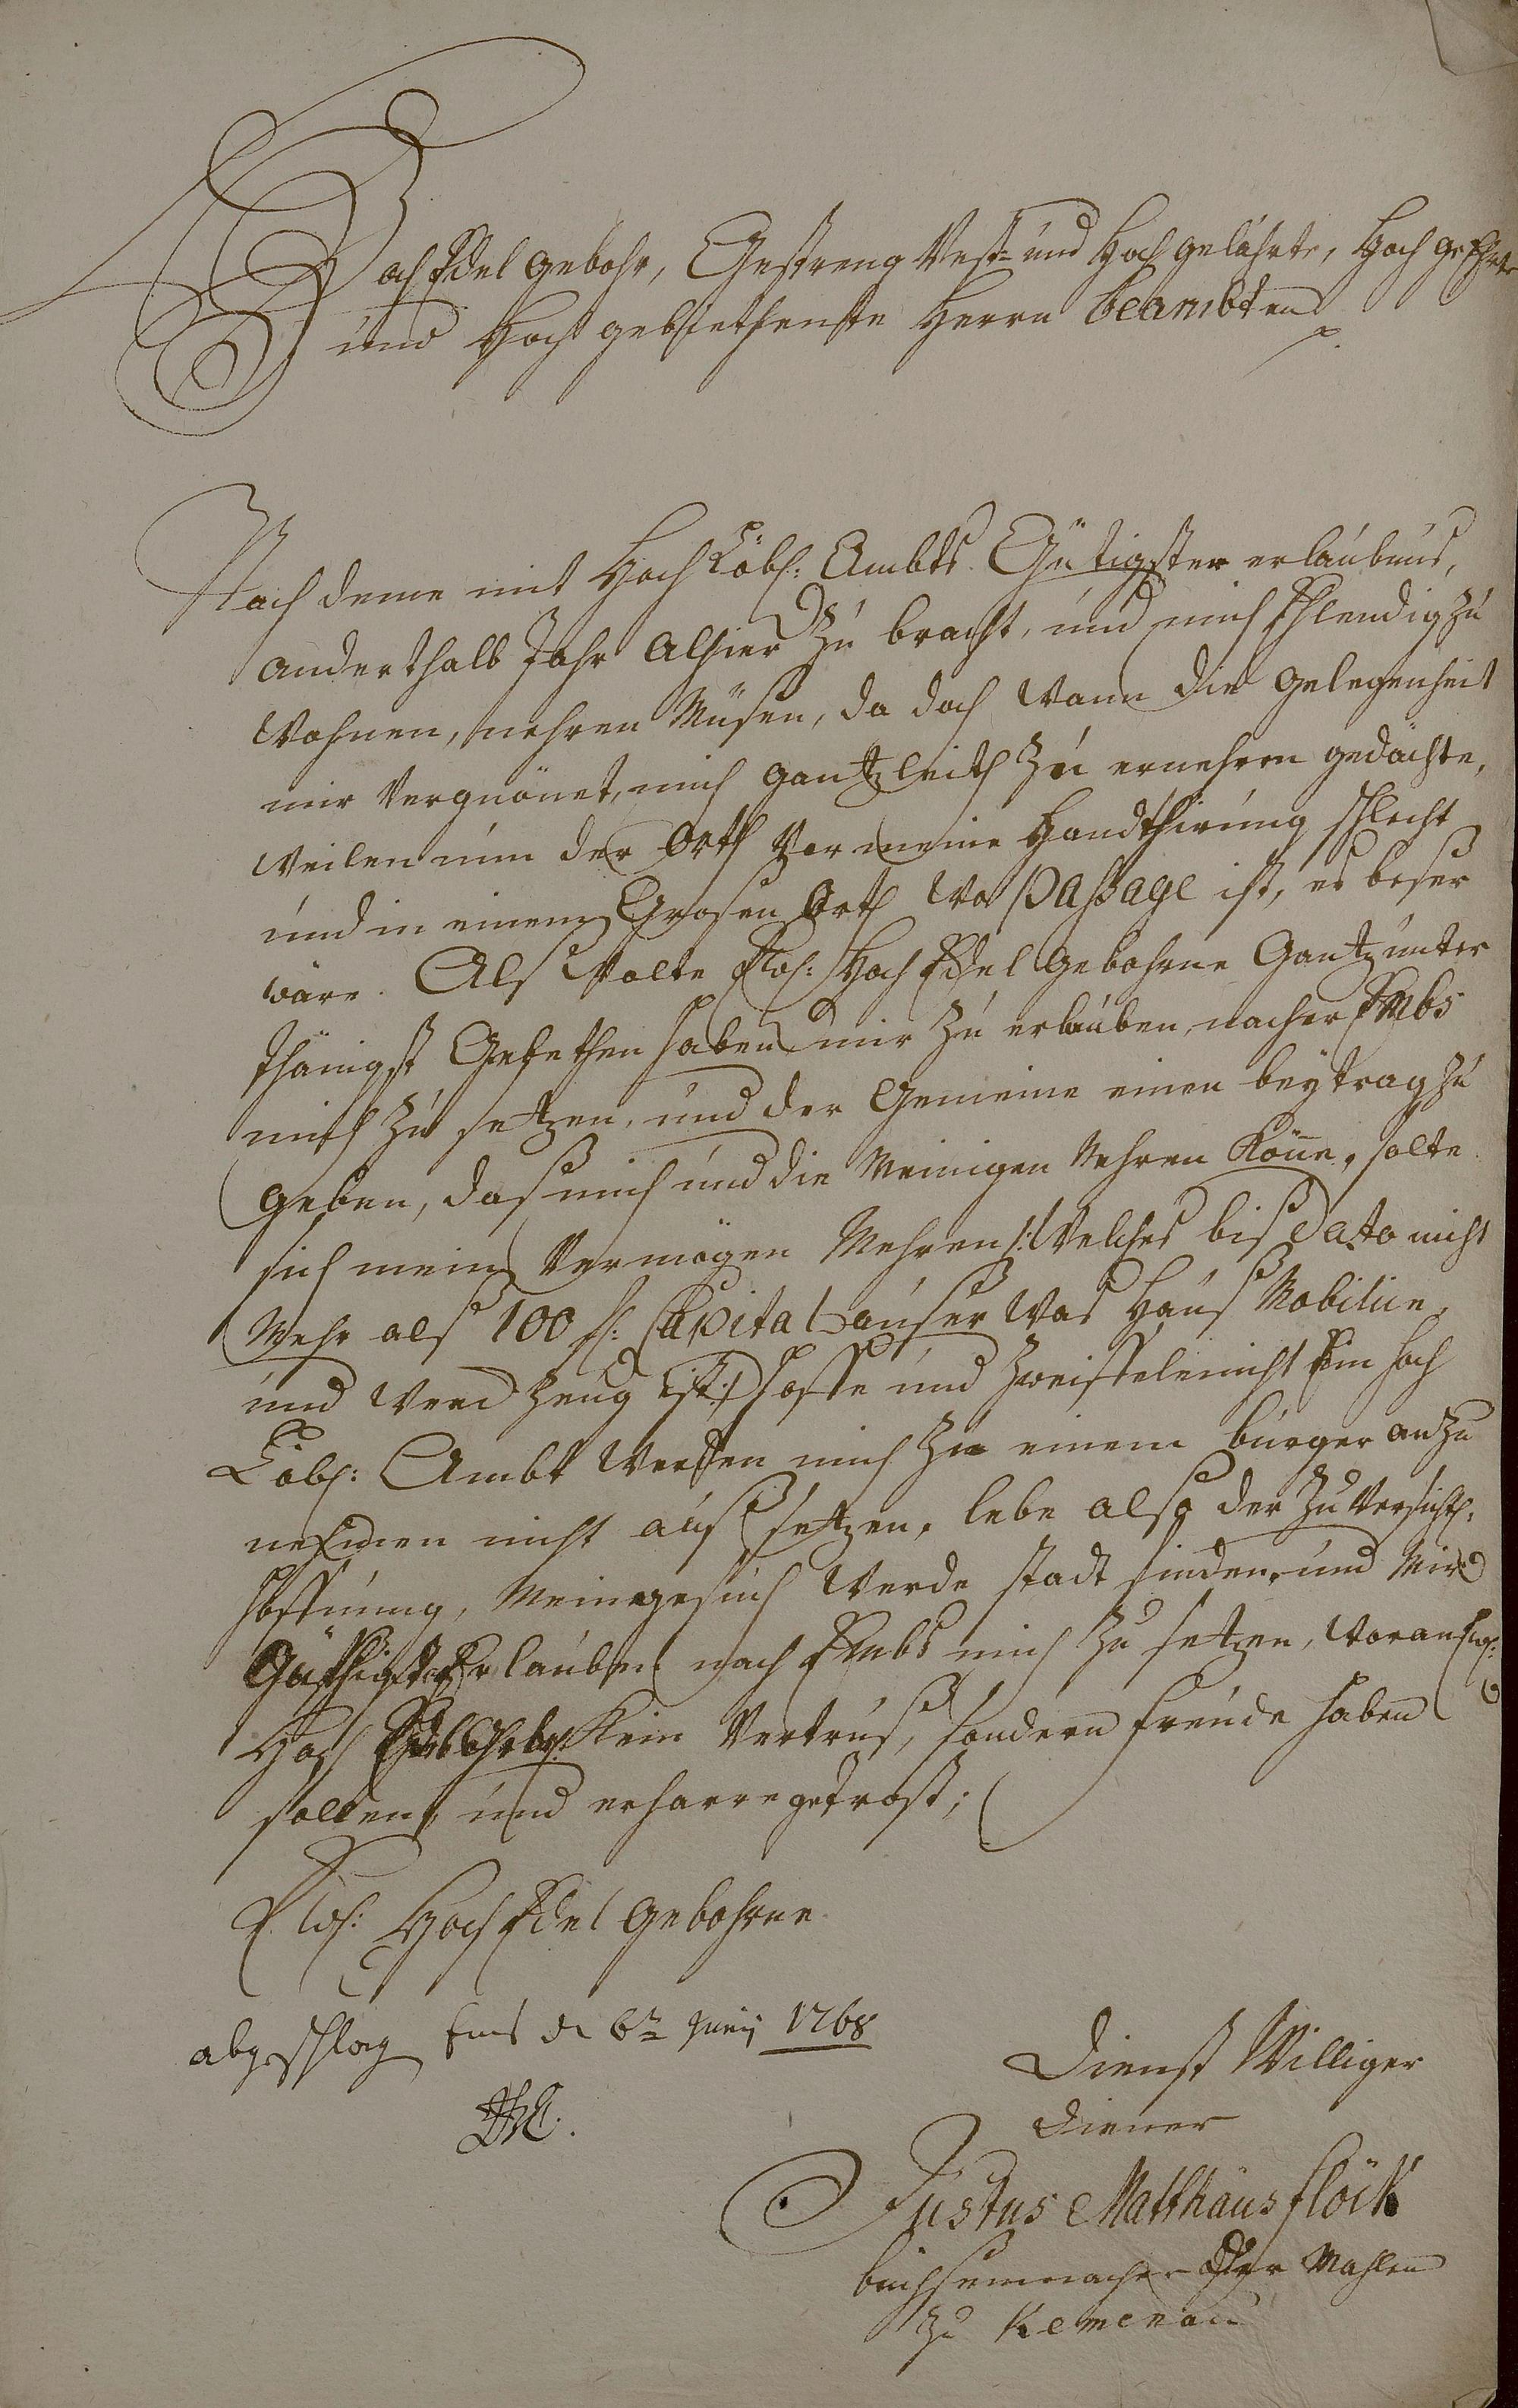 Hoch Edel gebohr, Gestreng Vest- und Hoch gelährte, Hoch geEhrte
und Hoch gebiethenste Herrn beambten
Nach deme mit Hoch Löbl: Ambts Gütigster erlaubnus,
anderthalb Jahr alhier Zu bracht, und mich Ehlendig zu
Wohnen, nehren Müsen, da doch Wann die gelegenheit
mir Vergnönet, mich gantz leich Zu ernehren gedächte,
Weilen nun der Orth Vor meine Handthirung schlecht
und in einem Grosen Orth Wo Passage ist, es beser
wäre. Alß Wolte Ew: Hoch Edel Gebohrne Gantz unter
thänigst Gebethen haben mir Zu erlauben, nacher Embs
mich Zu setzen, und der Gemeine einen beytrag zu
geben, das mich und die Meinigen Nehren Köne, solte
sich mein Vermögen Mehren /: Welches biß Dato nicht
Mehr alß 100 fl: Capital auser Was Hauß Mobilie,
und Werck Zeug ist :/ hoffe und Zweiffele nicht Ein hoch
Löbl: Ambt Werden mich Zu einem bürger an Zu
nehmen nicht auß setzen, lebe also der Zu Versichtl:
hoffnung, Mein gesuch Werde stadt finden, und Mir
Güthigst Erlauben nach Embs mich Zu setzen, Woran Ew:
Hoch Kein Vertrus, sondern freude haben
sollen, und erharre getrost;
Ew: Hoch Edel Gebohrne
abgeschlag Ems d 6n Junij 1768
Dienst Williger
Diener
Justus Matthäus flöck
büchsenmacher Mahlen
zu Kemenau